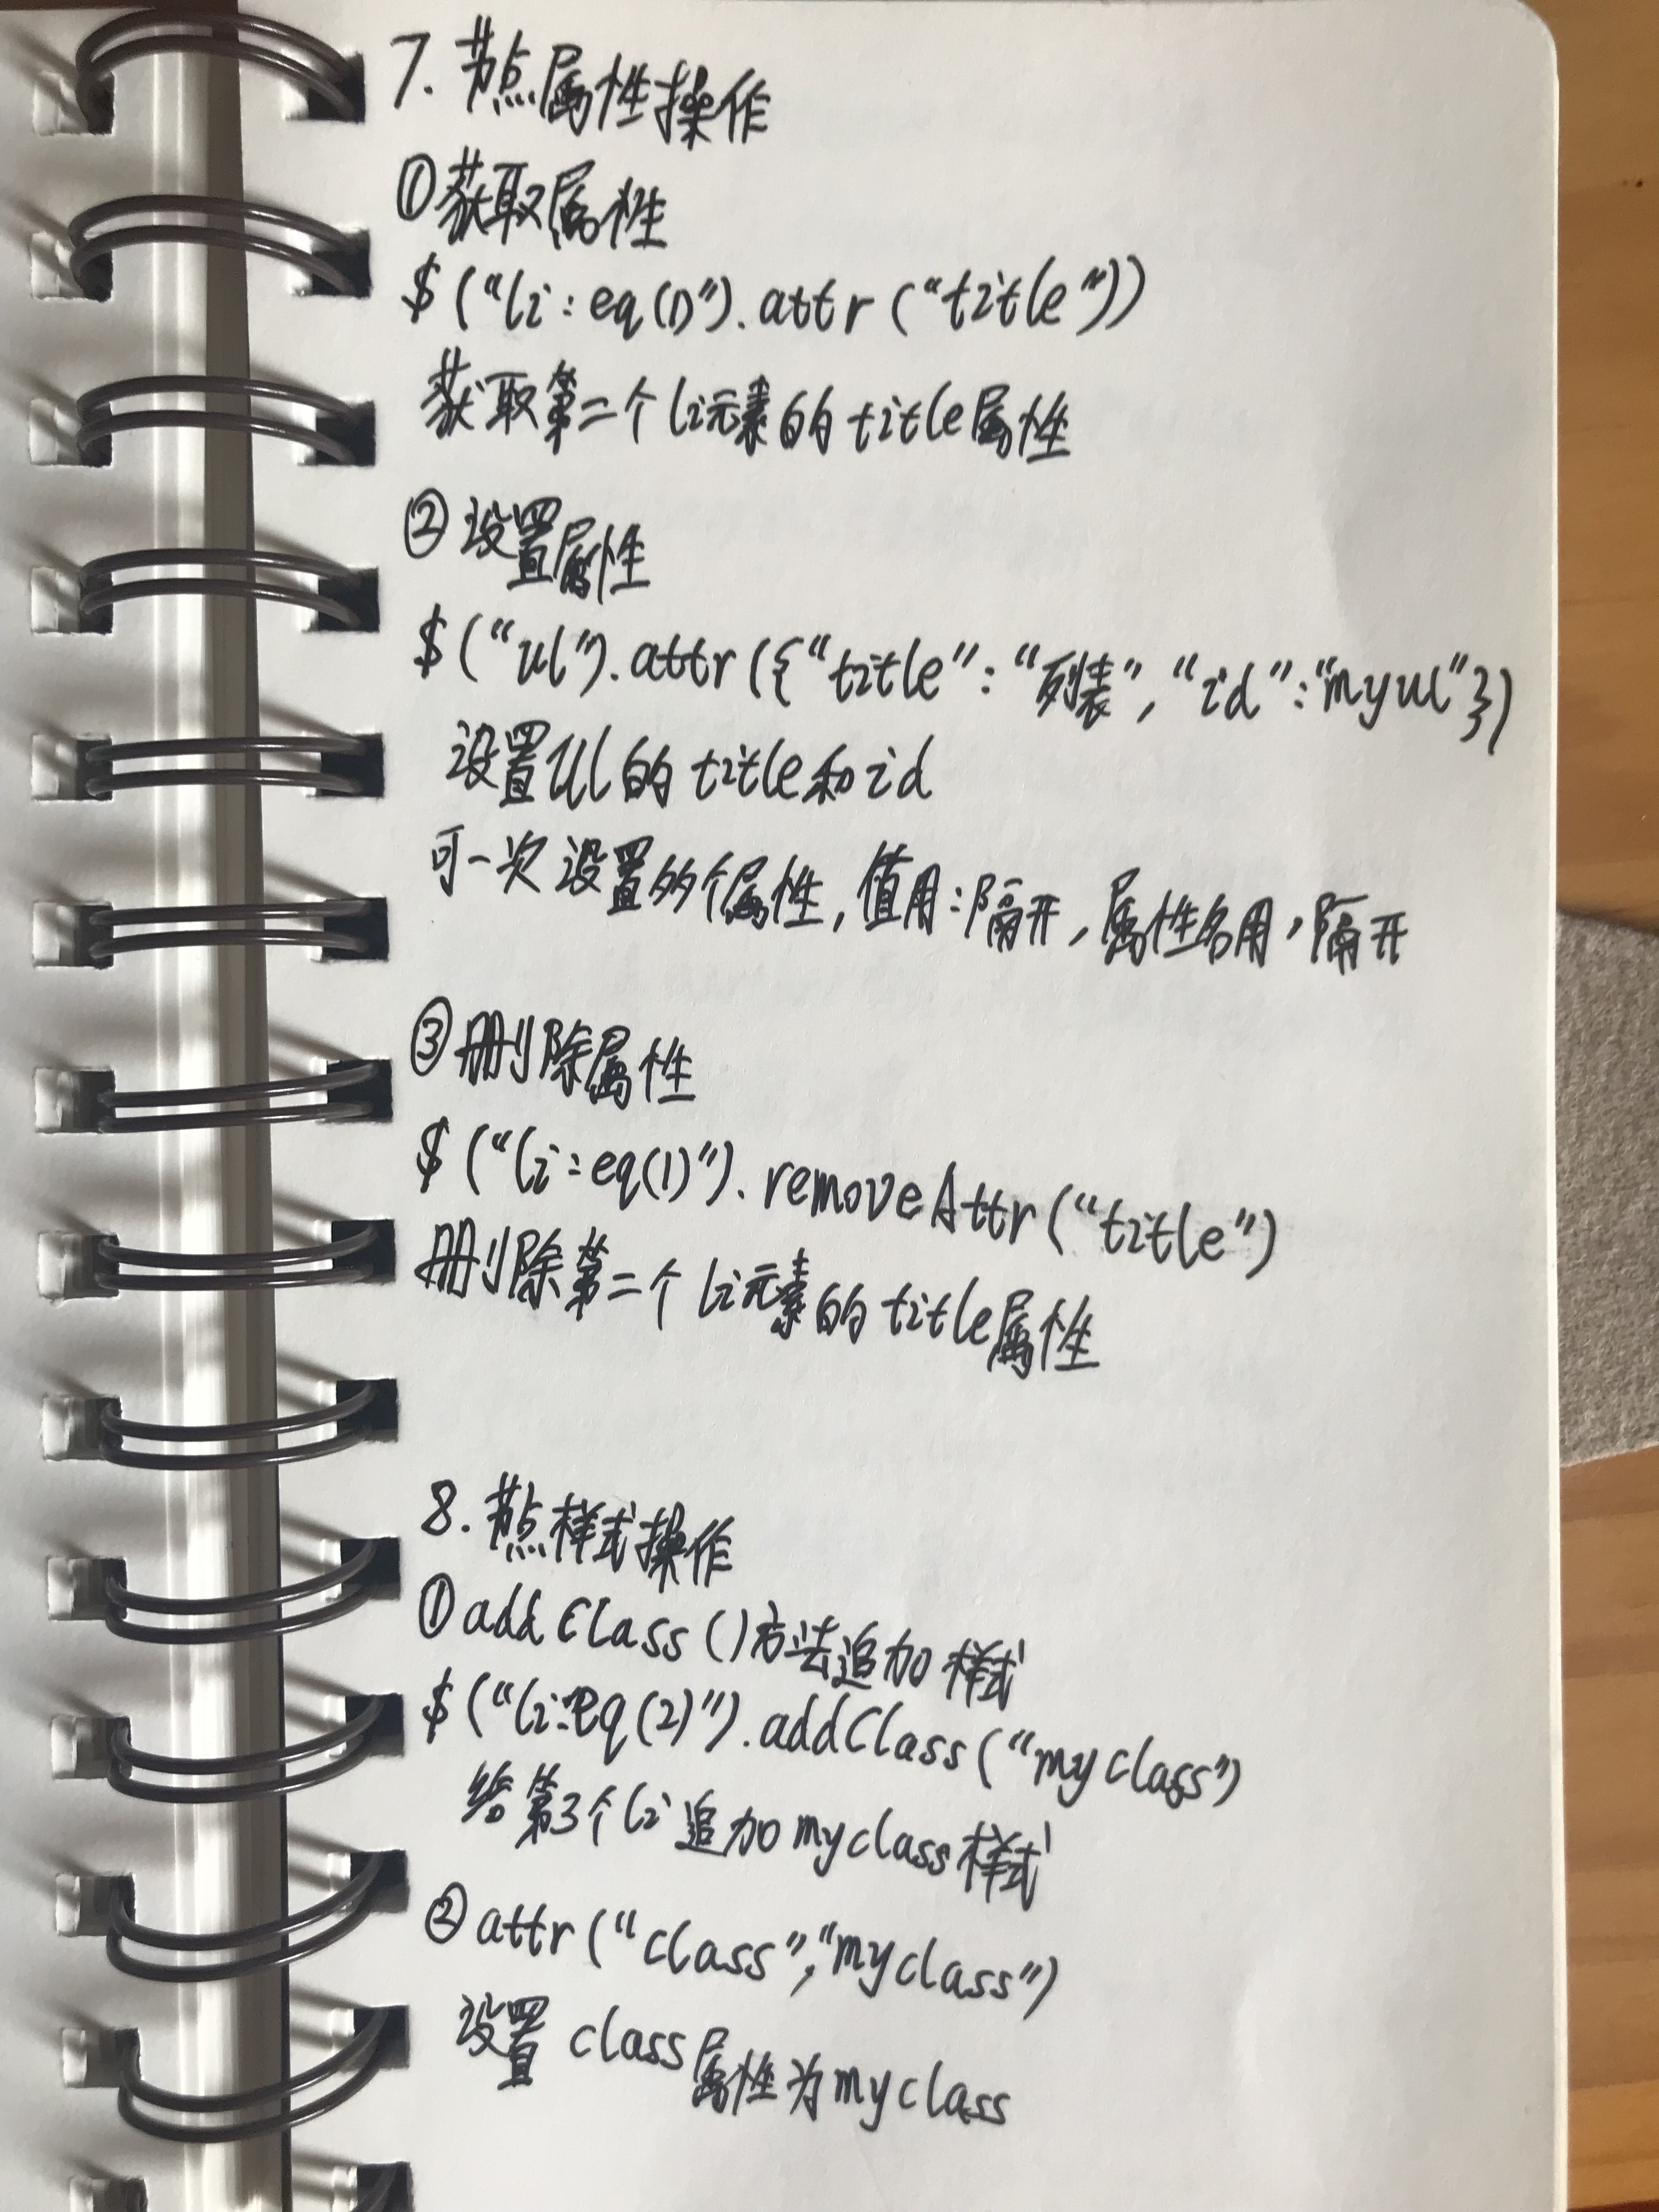 7. 节点属性操作
①获取属性
$("li:eq(1)").attr("title"))
获取第二个li元素的title属性
②设置属性
$("ul").attr({"title":"列表","id":"myul"})
设置Ul的title和id
可一次设置多个属性,值用:隔开,属性名用,隔开
③删除属性
$("li:eq(1)").removeAttr("title")
删除第二个li元素的title属性
8. 节点样式操作
①addClass()方法追加样式
$("li:eq(2)").addClass("myclass")
给第3个li追加myclass样式
②attr("class","myclass")
设置class属性为myclass